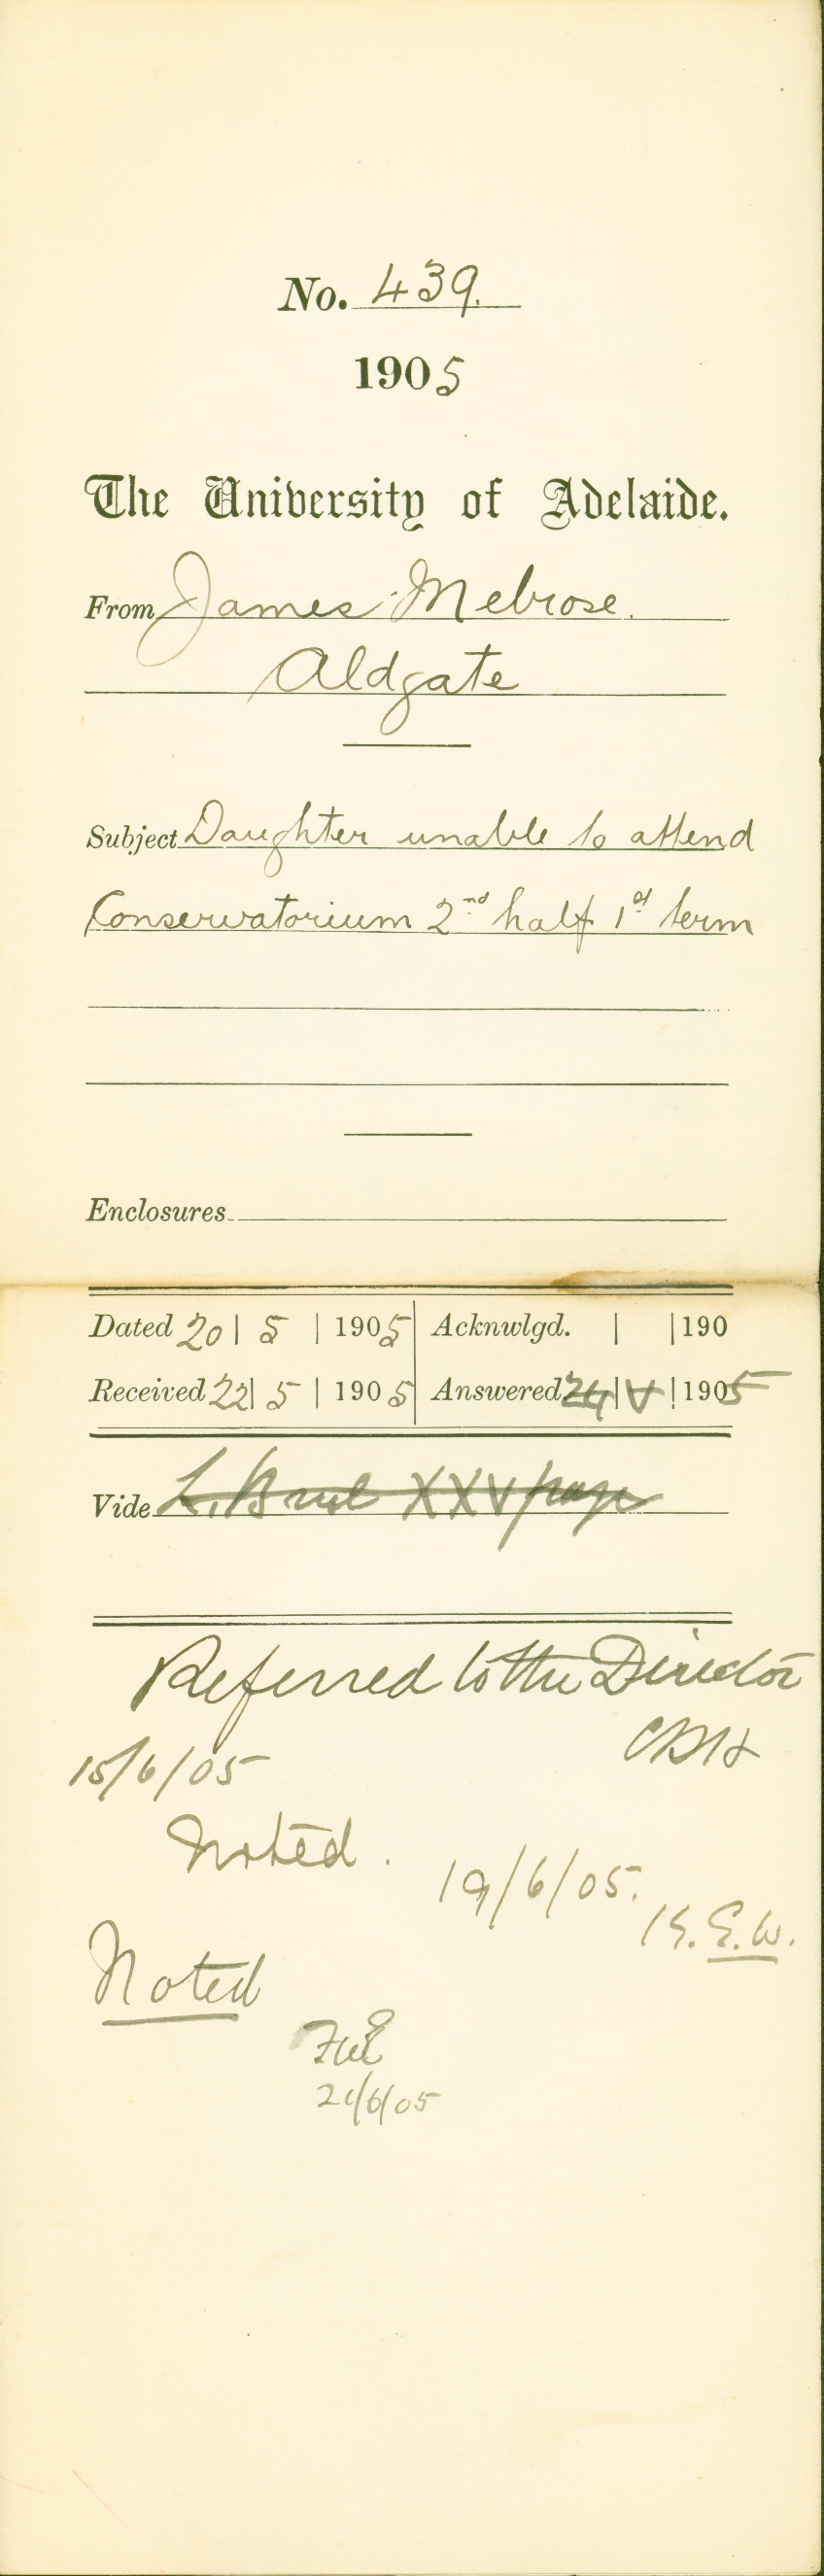 No. 439.
1905
The University of Adelaide.
From James Melrose.
Aldgate
Subject Daughter unable to attend
Conservatorium 2nd half 1st term
Enclosures
Dated 20 | 5 | 1905 Acknwlgd. | | 190
Received 22 | 5 | 1905 Answered 24 | V | 1905
Vide XXV page
Referred to the Director
CRH
15/6/05
Noted.
19/6/05.
Noted